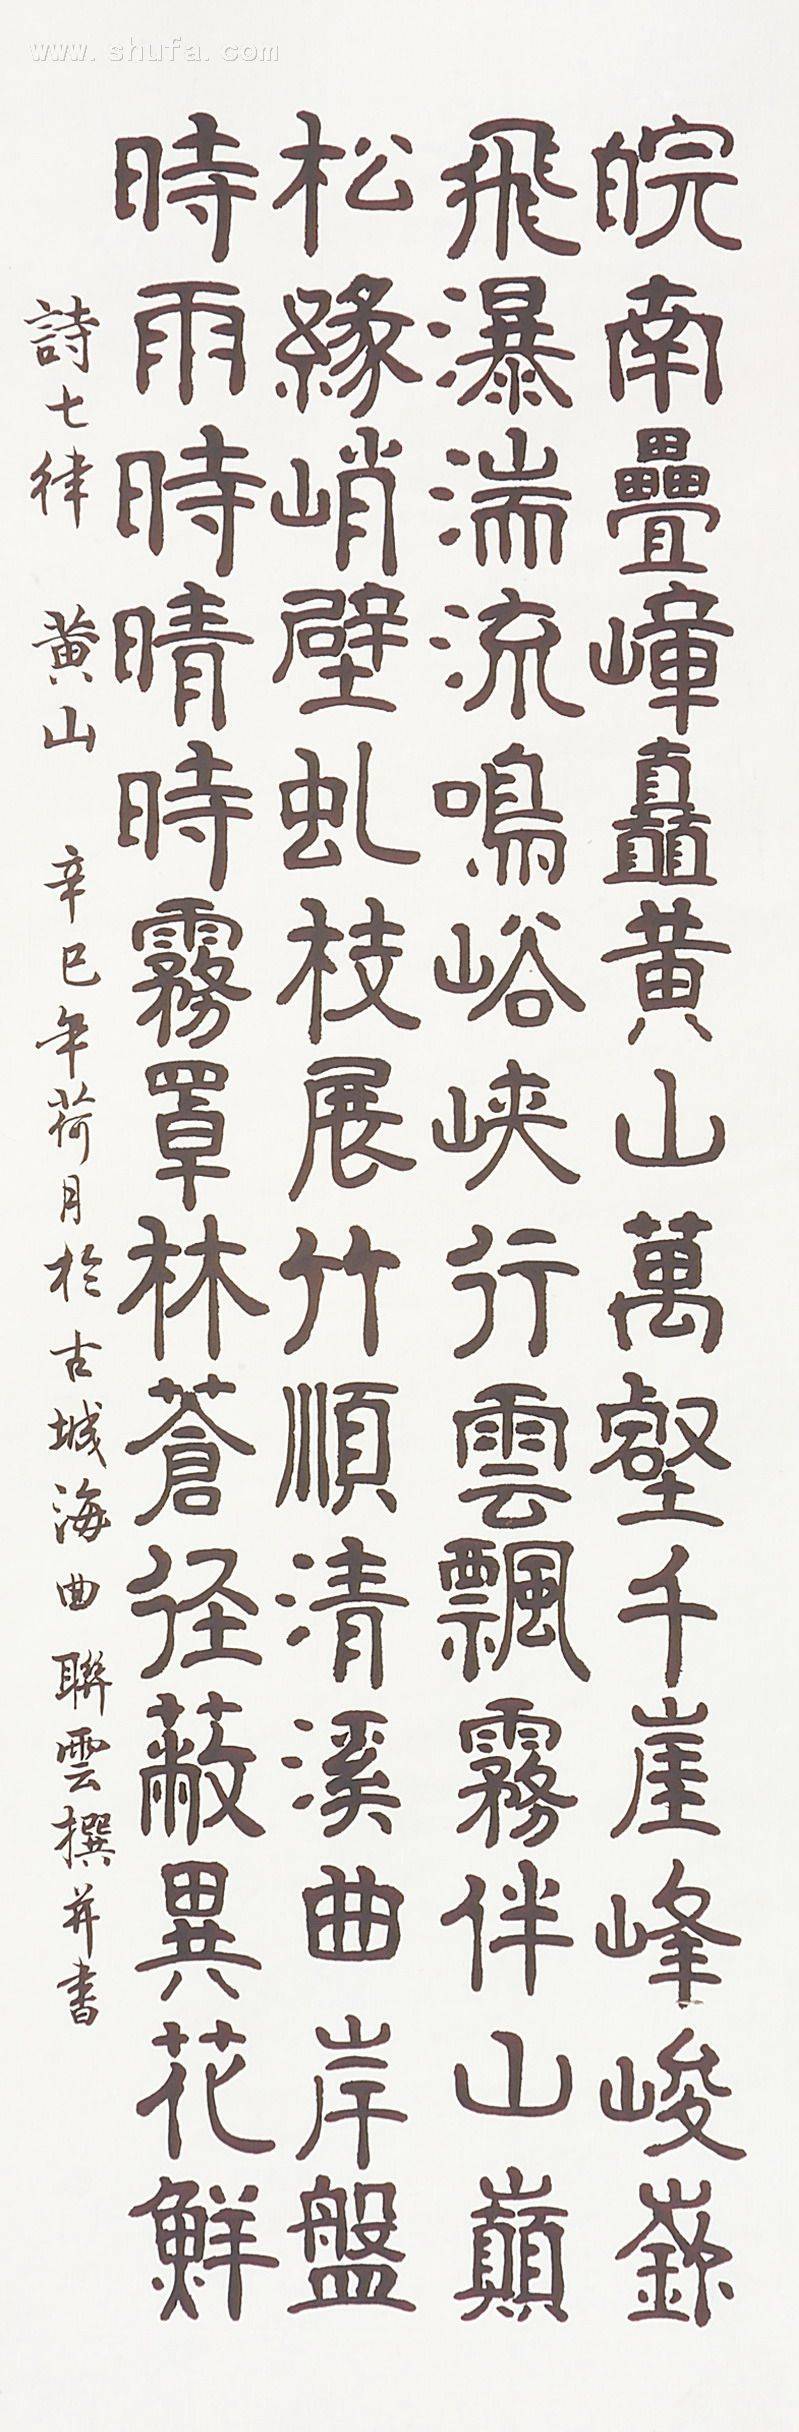 www.shufa.com
皖南疊嶂矗黄山萬壑千崖峰峻嶔
飛瀑湍流鳴峪峽行雲飄霧伴山巔
松緣峭壁虬枝展竹順清溪曲岸盤
時雨時晴時霧罩林蒼径蔽異花鮮
詩七律 黄山 辛巳年荷月於古城海曲聯雲撰并書